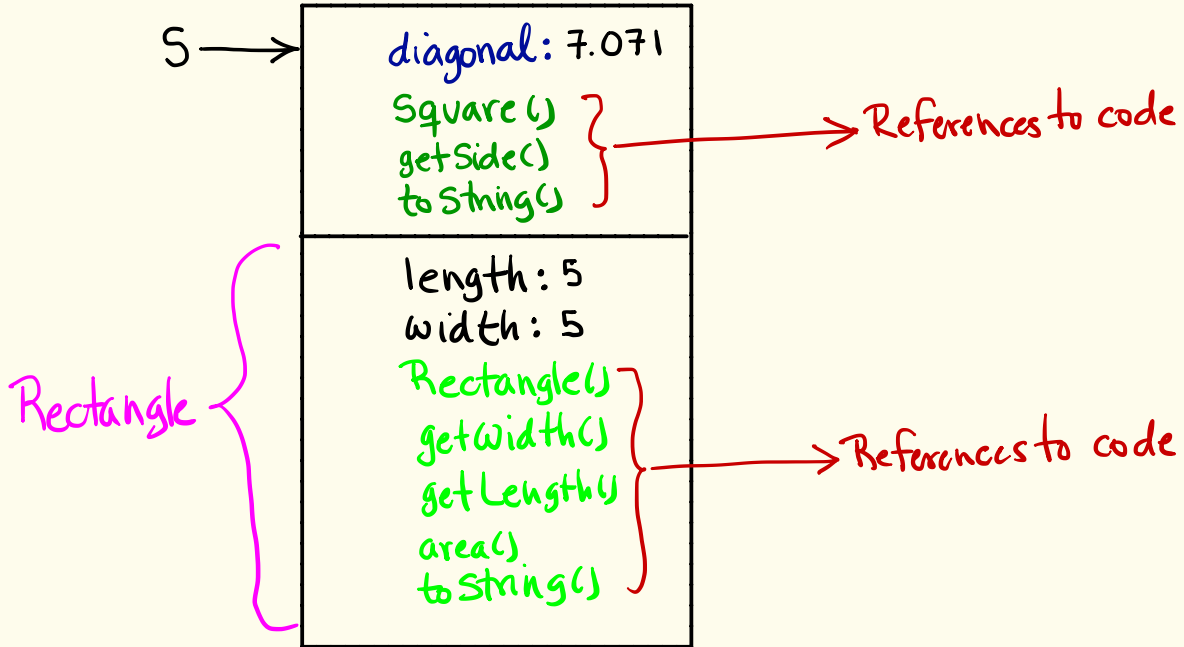 S
diagonal: 7.071
Square()
getSide()
toString()
References to code
length: 5
width: 5
Rectangle
Rectangle()
getWidth()
getLength()
area()
toString()
References to code